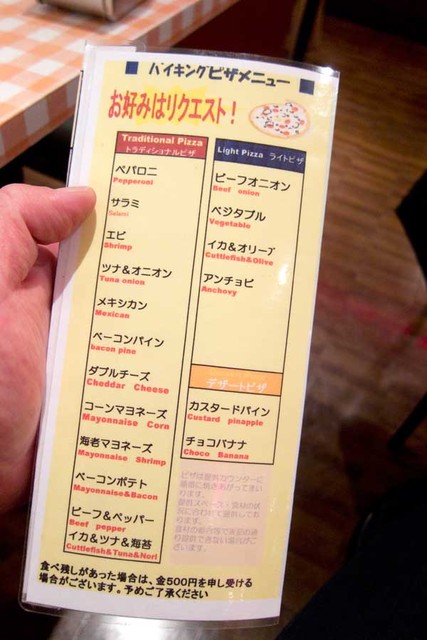 ■ バイキングピザメニュー ■
お好みはリクエスト!
Traditional Pizza
トラディショナルピザ
ペパロニ
Pepperoni
サラミ
Salami
エビ
Shrimp
ツナ&オニオン
Tuna onion
メキシカン
Mexican
ベーコンパイン
bacon pine
ダブルチーズ
Cheddar Cheese
コーンマヨネーズ
Mayonnaise Corn
海老マヨネーズ
Mayonnaise Shrimp
ベーコンポテト
Mayonnaise&Bacon
ビーフ&ペッパー
Beef pepper
イカ&ツナ&海苔
Cuttlefish&Tuna&Nori
Light Pizza ライトピザ
ビーフオニオン
Beef onion
ベジタブル
Vegetable
イカ&オリーブ
Cuttlefish&Olive
アンチョビ
Anchovy
デザートピザ
カスタードパイン
Custard pinapple
チョコバナナ
Choco Banana
食べ残しがあった場合は、金500円を申し受ける
場合がございます。予めご了承ください